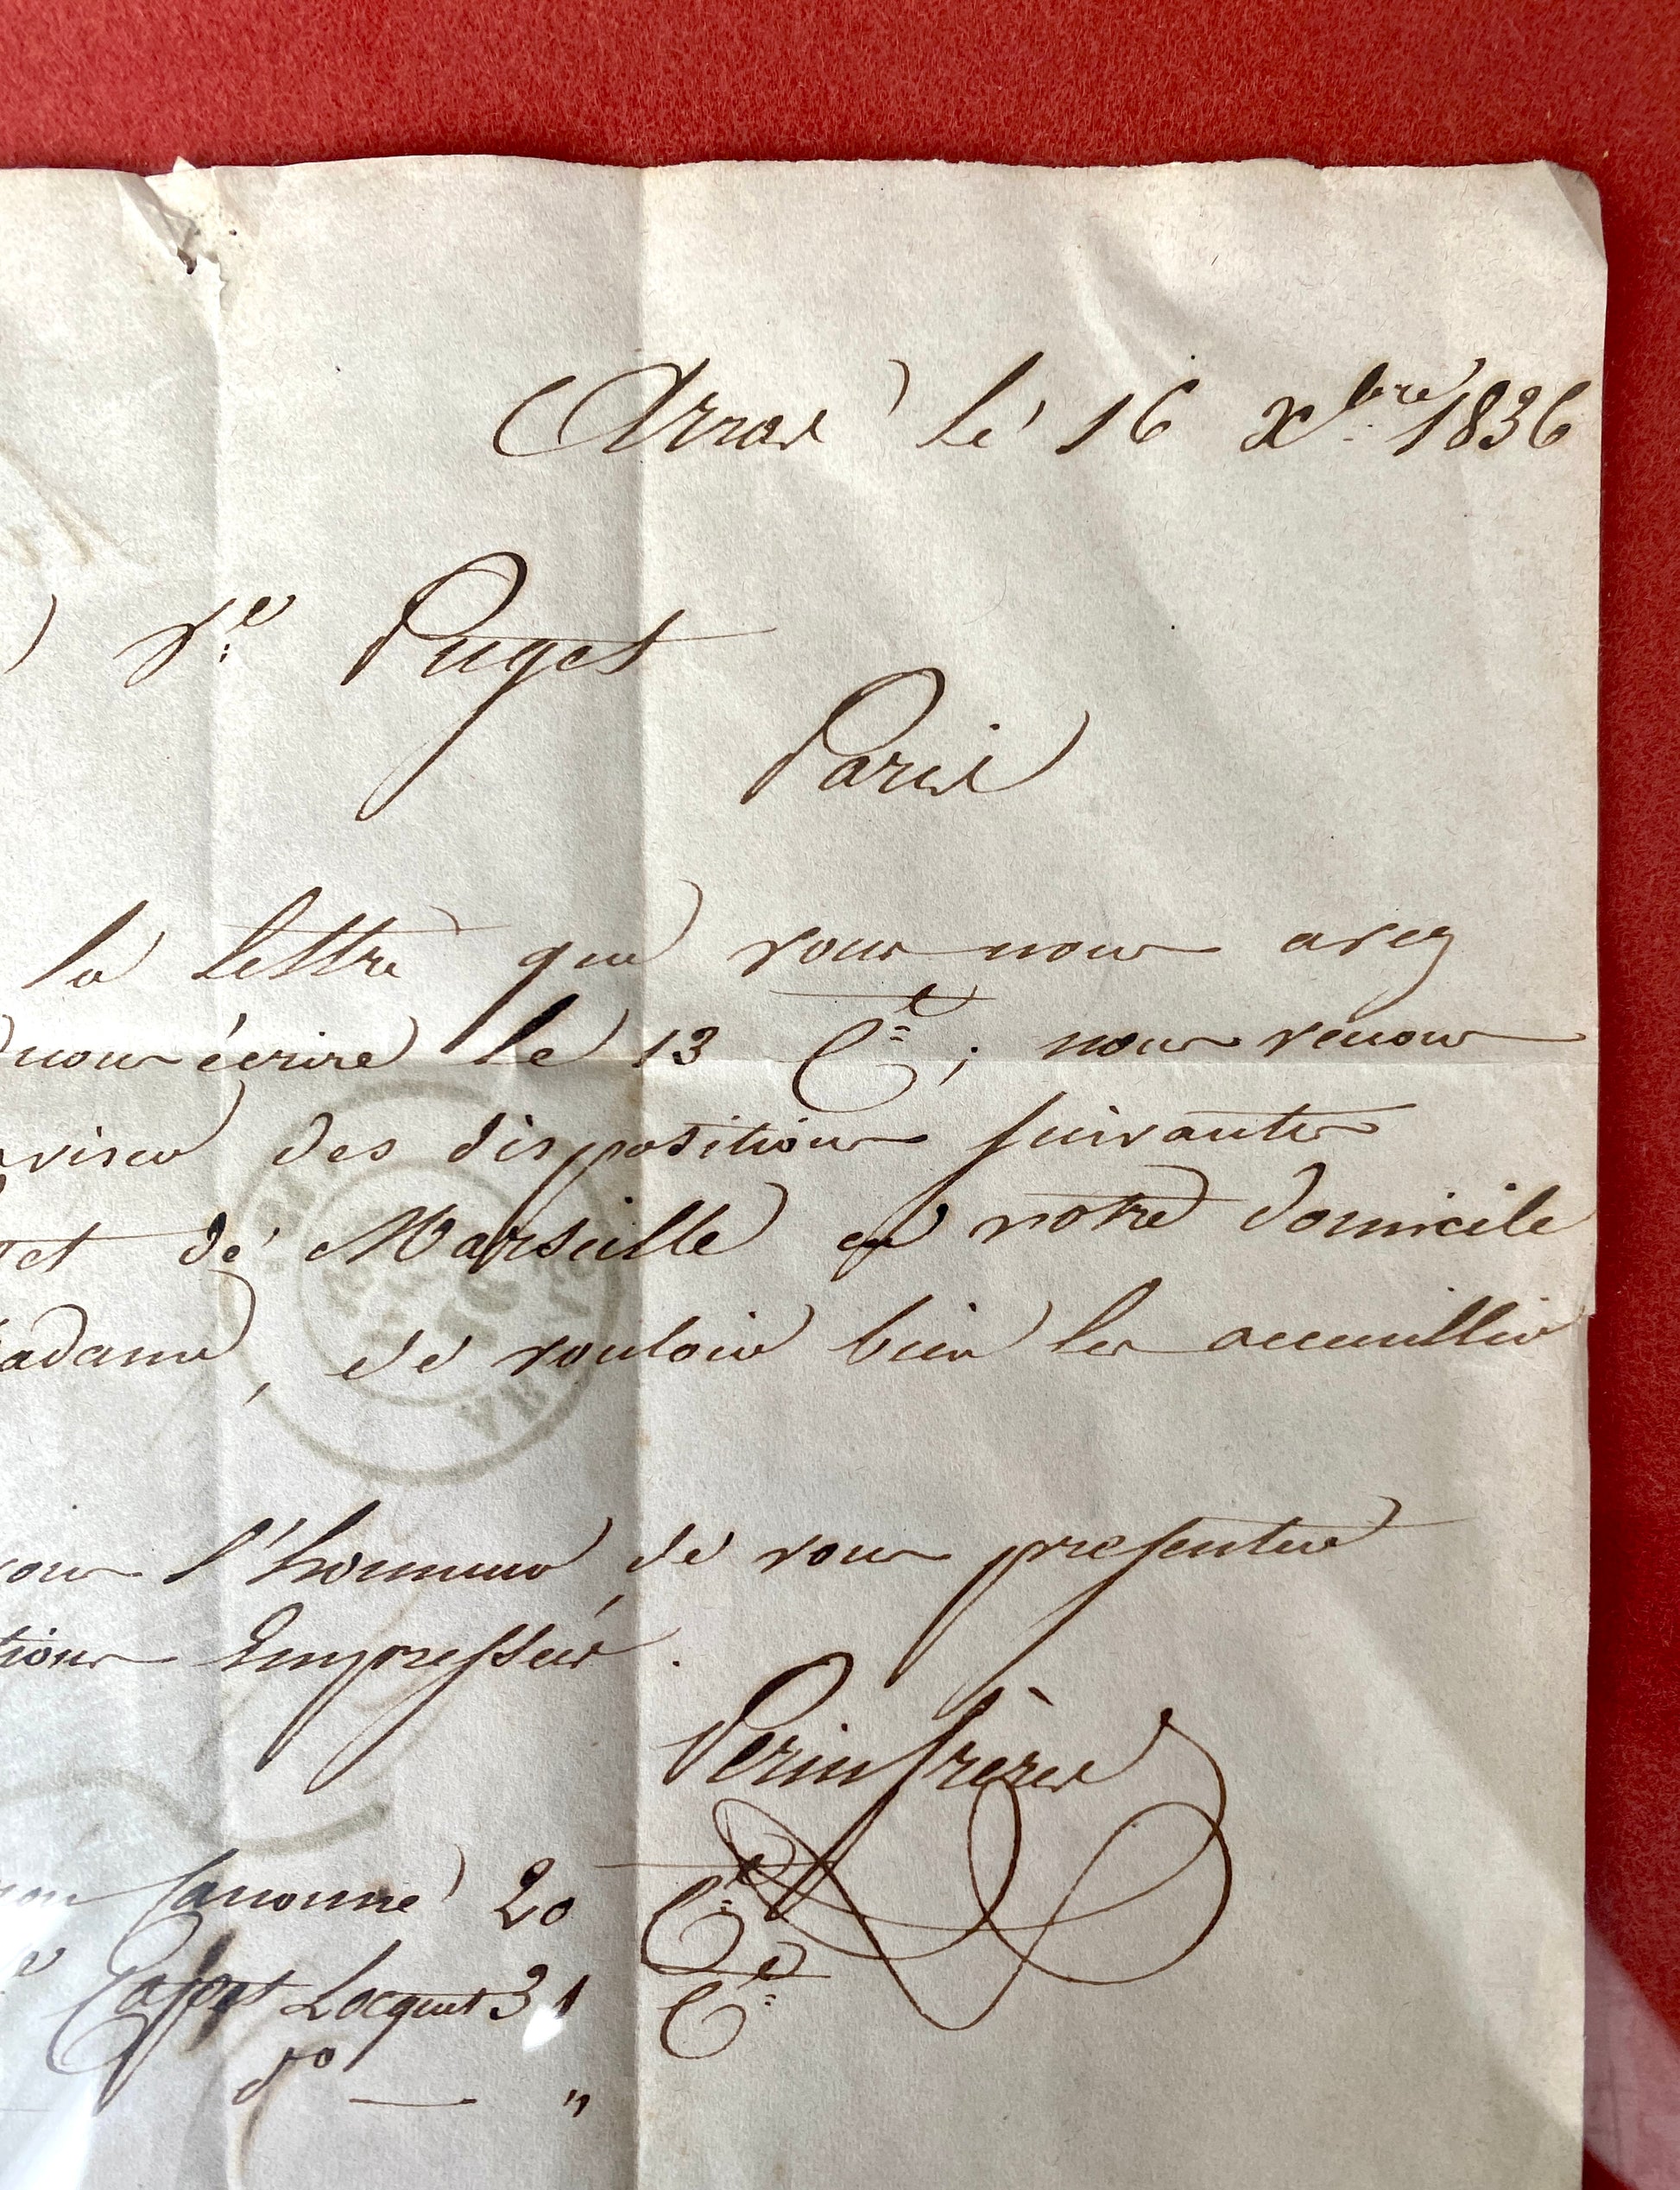 Arras le 16 xbre 1836
Ve Puget
Paris
la lettre que vous nous avez
nous écrire le 13 Ct ; nous venons
aviser des dispositions suivantes
et de Marseille en notre domicile
Madame, de vouloir bien les accueillir
l'honneur de vous presenter
Empressées.
Perin frères
Canonne 20 Ct
Locquet 31 Ct
do — "